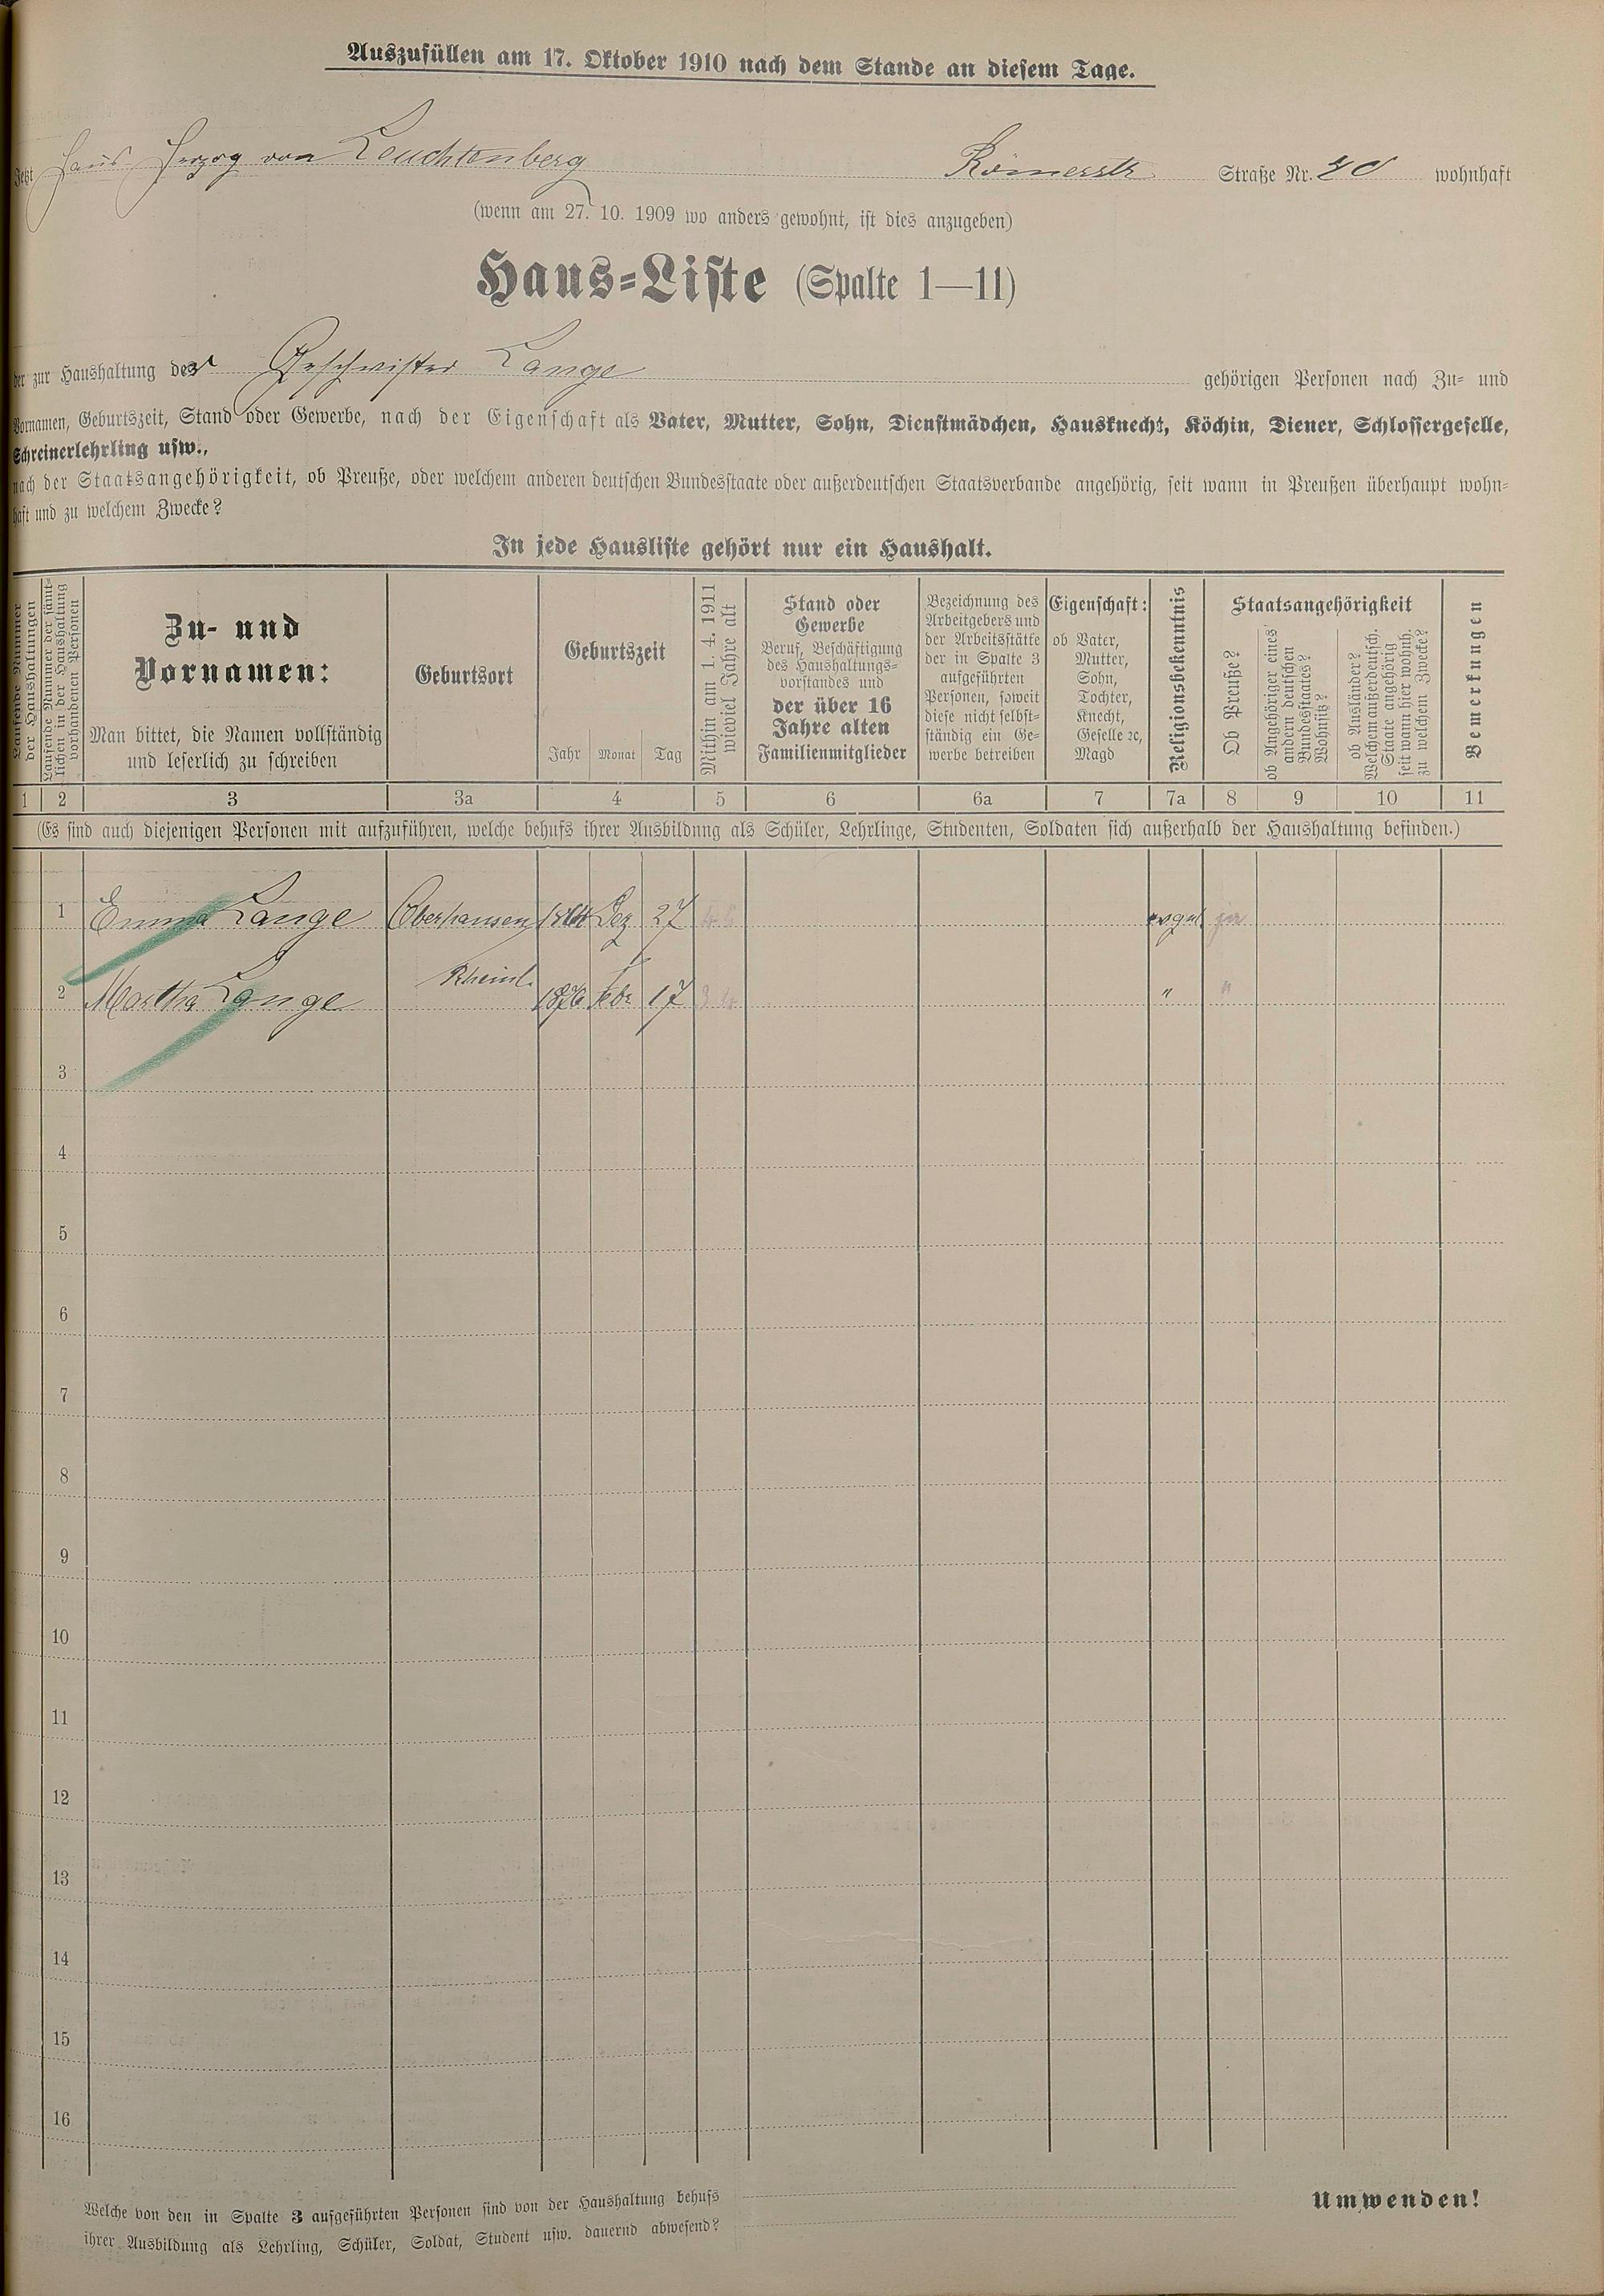 Auszufüllen am 17. Oktober 1910 nach dem Stande an diesem Tage.
Jetzt Haus Herzog von Leuchtenberg Römerstr. Straße Nr. 20 wohnhaft
(wenn am 27. 10. 1909 wo anders gewohnt, ist dies anzugeben)
Haus-Liste (Spalte 1—11)
der zur Haushaltung der Geschwister Lange gehörigen Personen nach Zu- und
Vornamen, Geburtszeit, Stand oder Gewerbe, nach der Eigenschaft als Vater, Mutter, Sohn, Dienstmädchen, Hausknecht, Köchin, Diener, Schlossergeselle,
Schreinerlehrling usw.,
nach der Staatsangehörigkeit, ob Preuße, oder welchem anderen deutschen Bundesstaate oder außerdeutschen Staatsverbande angehörig, seit wann in Preußen überhaupt wohn-
haft und zu welchem Zwecke?
In jede Hausliste gehört nur ein Haushalt.
Laufende Nummer
der Haushaltungen
Laufende Nummer der sämt-
lichen in der Haushaltung
vorhandenen Personen
Zu- und
Vornamen:
Man bittet, die Namen vollständig
und leserlich zu schreiben
Geburtsort
Geburtszeit
Jahr Monat Tag
Mithin am 1. 4. 1911
wieviel Jahre alt
Stand oder
Gewerbe
Beruf, Beschäftigung
des Haushaltungs-
vorstandes und
der über 16
Jahre alten
Familienmitglieder
Bezeichnung des
Arbeitgebers und
der Arbeitsstätte
der in Spalte 3
aufgeführten
Personen, soweit
diese nicht selbst-
ständig ein Ge-
werbe betreiben
Eigenschaft:
ob Vater,
Mutter,
Sohn,
Tochter,
Knecht,
Geselle ꝛc,
Magd
Religionsbekenntnis
Staatsangehörigkeit
Ob Preuße?
ob Angehöriger eines
andern deutschen
Bundesstaates?
Wohnsitz?
ob Ausländer?
Welchem außerdeutsch.
Staate angehörig
seit wann hier wohnh.
zu welchem Zwecke?
Bemerkungen
1 2 3 3a 4 5 6 6a 7 7a 8 9 10 11
(Es sind auch diejenigen Personen mit aufzuführen, welche behufs ihrer Ausbildung als Schüler, Lehrlinge, Studenten, Soldaten sich außerhalb der Haushaltung befinden.)
1 Emma Lange Oberhausen Dez 27 evgel. ja
Rheinl.
2 Martha Lange 1876 Febr 17 " "
3
4
5
6
7
8
9
10
11
12
13
14
15
16
Welche von den in Spalte 3 aufgeführten Personen sind von der Haushaltung behufs
ihrer Ausbildung als Lehrling, Schüler, Soldat, Student usw. dauernd abwesend?
Umwenden!